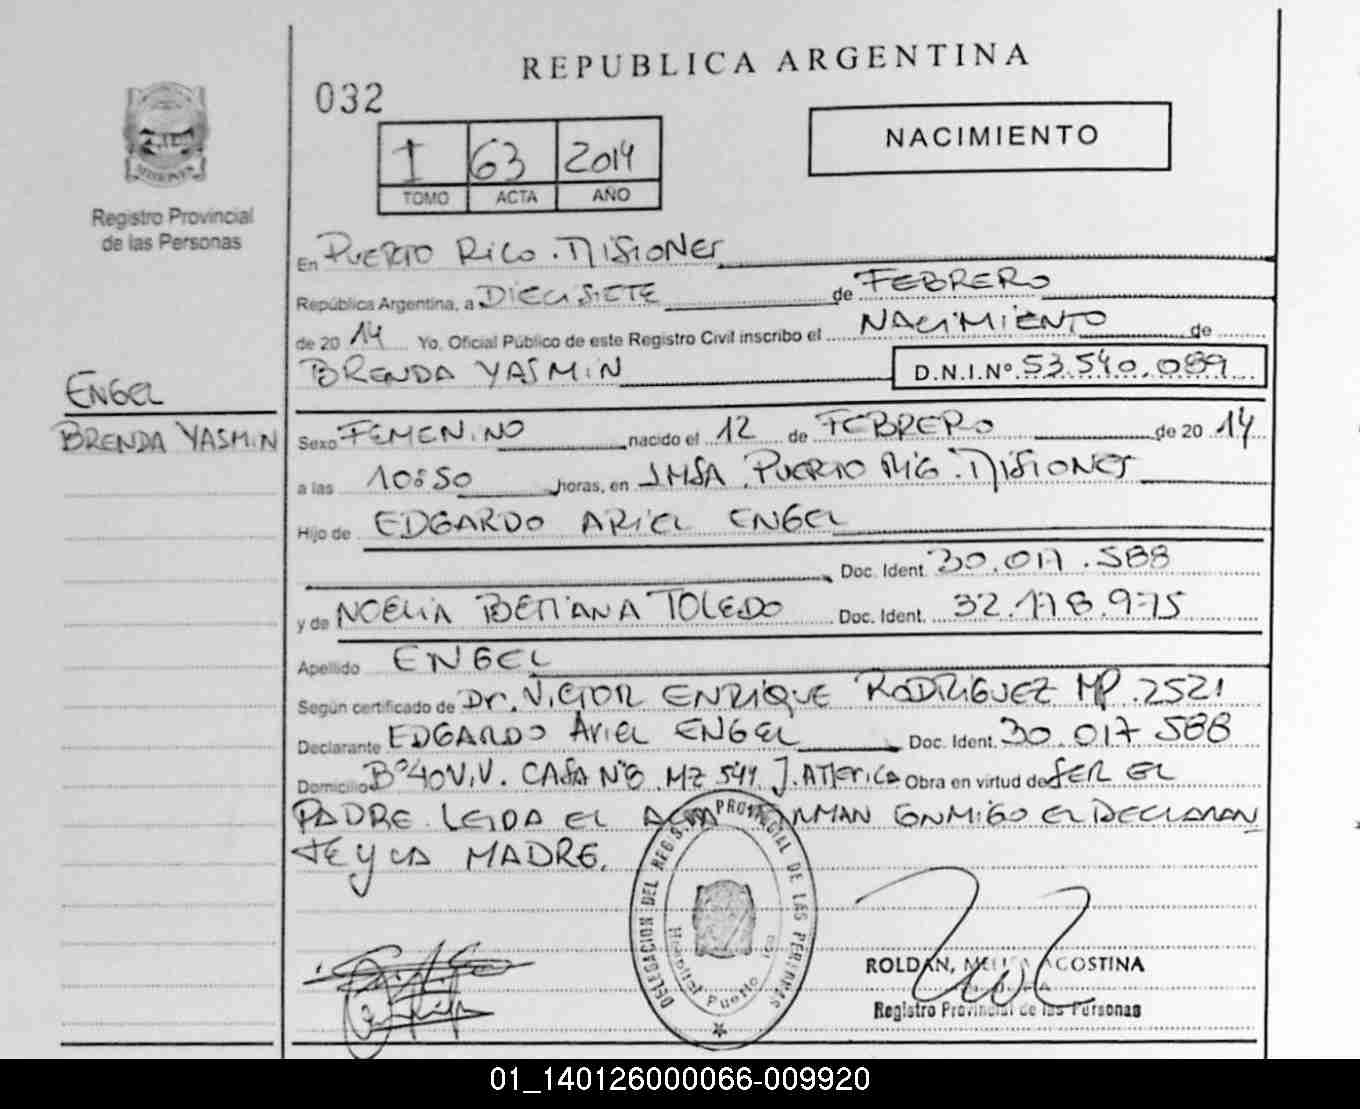 REPUBLICA ARGENTINA
032
NACIMIENTO
I 63 2014
TOMO ACTA AÑO
MISIONES
Registro Provincial
de las Personas
En PUERTO RICO. MISIONES
República Argentina, a DIECISIETE de FEBRERO
de 2014 Yo, Oficial Público de este Registro Civil inscribo el NACIMIENTO de
BRENDA YASMIN D.N.I.Nº 53.540.089
ENGEL
BRENDA YASMIN
Sexo FEMENINO nacido el 12 de FEBRERO de 2014
a las 10:50 horas, en IMSA. PUERTO RICO. MISIONES
Hijo de EDGARDO ARIEL ENGEL
Doc. Ident. 30.017.588
y de NOELIA BETIANA TOLEDO Doc. Ident. 32.178.975
Apellido ENGEL
Según certificado de Dr. VICTOR ENRIQUE RODRIGUEZ MP. 2521
Declarante EDGARDO ARIEL ENGEL Doc. Ident. 30.017.588
Domicilio Bº 40 VIV. CASA Nº8 MZ 541 J. AMERICA Obra en virtud de SER EL
PADRE. LEIDA EL ACTA FIRMAN CONMIGO EL DECLARAN
TE Y LA MADRE.
DELEGACION DEL REGISTRO PROVINCIAL DE LAS PERSONAS
Hospital Puerto
ROLDAN, AGOSTINA
Registro Provincial de las Personas
01_140126000066-009920